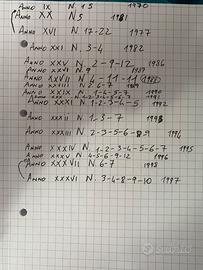 ANNO IX N. 15 1970
ANNO XX N5 1981
ANNO XVI N. 17-22 1977
ANNO XXI N. 3-4 1982
ANNO XXV N. 2-9-12 1986
ANNO XXVI N. 9
ANNO XXVII N. 4-11-11
ANNO N. 6-7 1989
ANNO N. 1-4-5-7 1990
ANNO XXXI N. 1-2-3-4-5 1992
ANNO XXXII N. 1-3-7
ANNO XXXIII N. 2-3-5-6-8 1994
ANNO XXXIV N. 1-2-3-4-5-6-7 1995
ANNO XXXV N. 4-5-6-9-12 1996
ANNO XXXVII N. 6-7 1998
ANNO XXXVI N. 3-4-8-9-10 1997